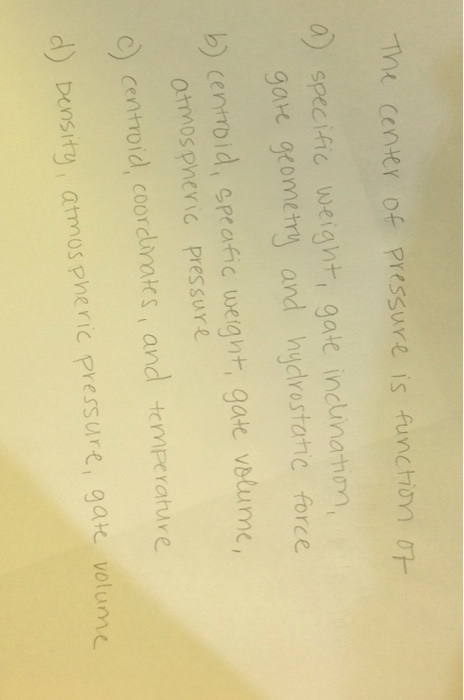 The center of pressure is function of
a) specific weight, gate inclination,
gate geometry and hydrostatic force
b) centroid, specific weight, gate volume,
atmospheric pressure
c) centroid, coordinates, and temperature
d) Density, atmospheric pressure, gate volume